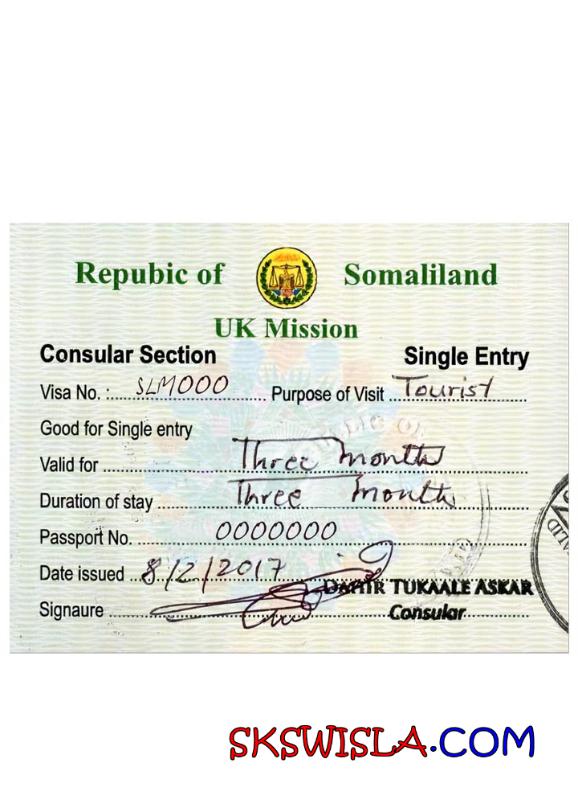 Repubic of Somaliland
UK Mission
Consular Section Single Entry
Visa No. : SLM000 Purpose of Visit Tourist
Good for Single entry
Valid for Three months
Duration of stay Three months
Passport No. 0000000
Date issued 8/2/2017
DAHIR TUKAALE ASKAR
Signaure Consular
VALID
SKSWISLA.COM